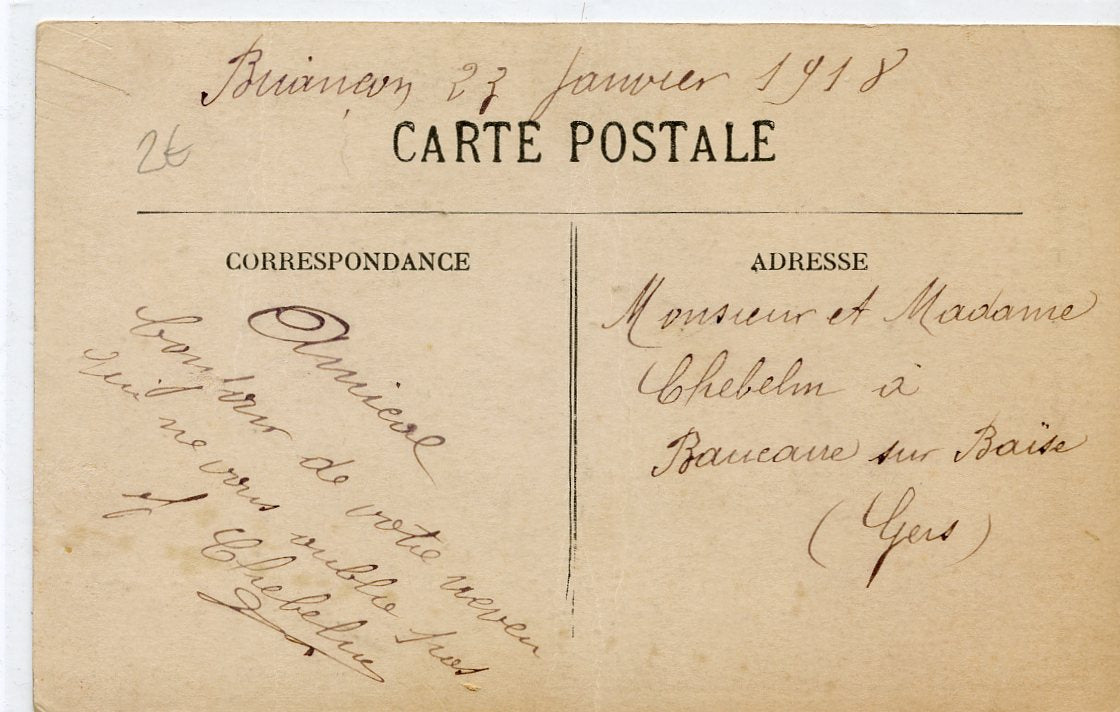 Briançon 23 Janvier 1918
2€
CARTE POSTALE
CORRESPONDANCE
Amical
bonjour de votre neveu
qui ne vous oublie pas
Chebelm
ADRESSE
Monsieur et Madame
Chebelm à
Baucaire sur Baïse
(Gers)